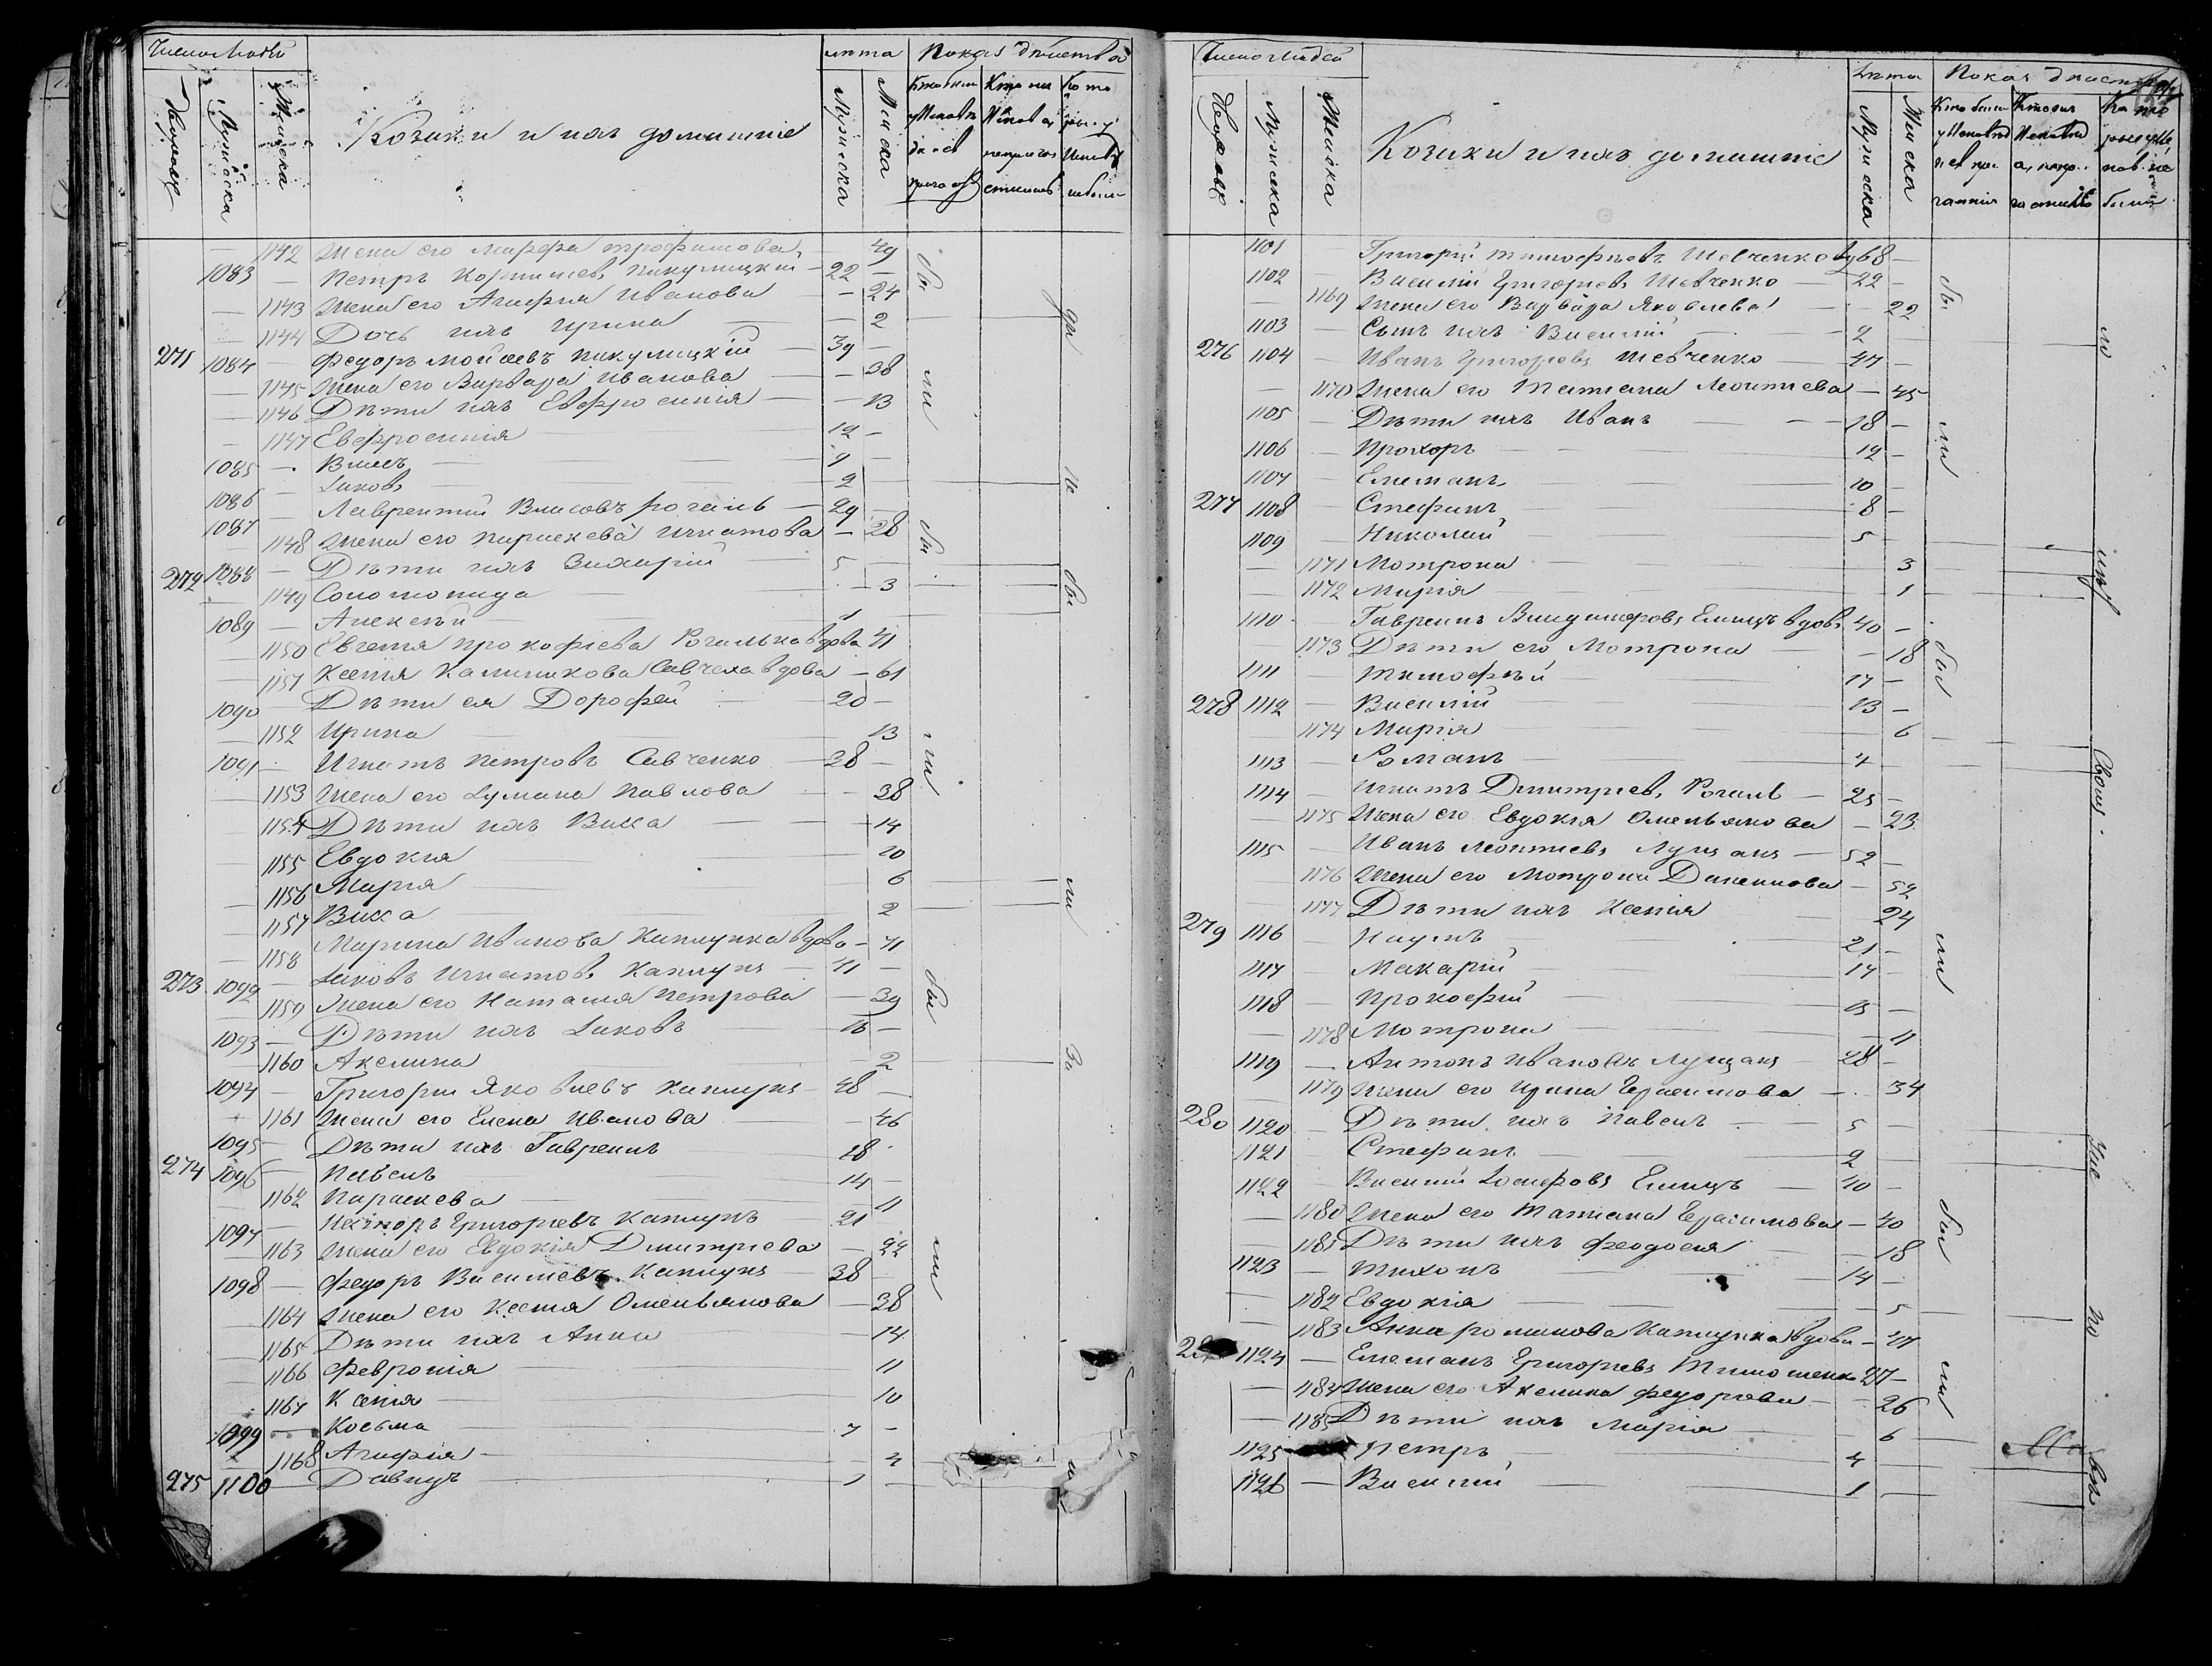 Число людей
лѣта Показ дѣйства
Дворовъ Мужеска Женска Козаки и ихъ домашніе Мужеска Женска
1142 Жена его Марфа Трофимова 49
1083 Петръ Корнилiевъ Никулицкiй 22
1143 Жена его Агафiя Иванова 24
1144 Дочь ихъ Ирина 2
271 1084 Федоръ Мойсеевъ Никулицкій 39
1145 Жена его Варвара Иванова 38
1146 Дѣти ихъ Евфросинія 13
1147 Евфросинія 12
1085 Власъ 9
1086 Іаковъ 2
1087 Лаврентий Власовъ Рогаль 29
1148 Жена его Параскева Игнатова 28
272 1088 Дѣти ихъ Захарій 5
1149 Соломонида 3
1089 Алексѣй 1
1150 Евгенія Прокофіева Рогалька вдова 71
1151 Ксенія Калиникова Савчеха вдова 61
1090 Дѣти ея Дорофей 20
1152 Ирина 13
1091 Игнатъ Петровъ Савченко 38
1153 Жена его Іуліана Павлова 38
1154 Дѣти ихъ Васса 14
1155 Евдокія 10
1156 Марія 6
1157 Васса 2
1158 Марина Иванова Каплунка вдова 71
273 1092 Іаковъ Игнатовъ Каплунъ 41
1159 Жена его Наталія Петрова 39
1093 Дѣти ихъ Іаковъ 16
1160 Акелина 2
1094 Григорій Яковлевъ Каплунъ 48
1161 Жена его Елена Иванова 46
1095 Дѣти ихъ Гавреилъ 18
274 1096 Павелъ 14
1162 Параскева 11
1097 Несторъ Григоріевъ Каплунъ 21
1163 Жена его Евдокія Дмитріева 22
1098 Федоръ Василіевъ Каплунъ 38
1164 Жена его Ксенія Омельянова 38
1165 Дѣти ихъ Анна 14
1166 Февронія 11
1167 Ксенія 10
1099 Косьма 7
1168 Агафія
275 1100 Давидъ 1
Число людей
лѣта Показ дѣйства
Дворовъ Мужеска Женска Козаки и ихъ домашніе Мужеска Женска
1101 Григорій Тимофѣевъ Шевченко 68
1102 Василій Григоріевъ Шевченко 22
1169 Жена его Варвара Яковлева 22
1103 Сынъ ихъ Василій 2
276 1104 Иванъ Григоріевъ Шевченко 47
1170 Жена его Татіана Леонтіева 45
1105 Дѣти ихъ Иванъ 18
1106 Прохоръ 12
1107 Емеліанъ 10
277 1108 Стефанъ 8
1109 Николай 5
1171 Мотрона 3
1172 Марія 1
1110 Гавреилъ Владимеровъ Елицъ вдовъ 40
1173 Дѣти его Мотрона 18
1111 Тимофѣй 17
278 1112 Василій 13
1174 Марія 6
1113 Романъ 4
1114 Игнатъ Дмитріевъ Рогаль 25
1175 Жена его Евдокія Омельянова 23
1115 Иванъ Леонтіевъ Лущанъ 52
1176 Жена его Мотрона Даниилова 52
1177 Дѣти ихъ Ксенія 24
279 1116 Наумъ 21
1117 Макарій 17
1118 Прокофій 15
1178 Мотрона 11
1119 Антонъ Ивановъ Лущанъ 28
1179 Жена его Ирина Герасимова 34
280 1120 Дѣти ихъ Павелъ 5
1121 Стефанъ 2
1122 Василій Іосифовъ Елицъ 40
1180 Жена его Татіана Герасимова 40
1181 Дѣти ихъ Феодосія 18
1123 Тихонъ 14
1182 Евдокія 5
1183 Анна Романова Каплунка вдова 47
1124 Емеліанъ Григоріевъ Тимошенко 27
1184 Жена его Акелина Федорова 26
1185 Дѣти ихъ Марія 6
1125 Петръ 4
1126 Василій 1